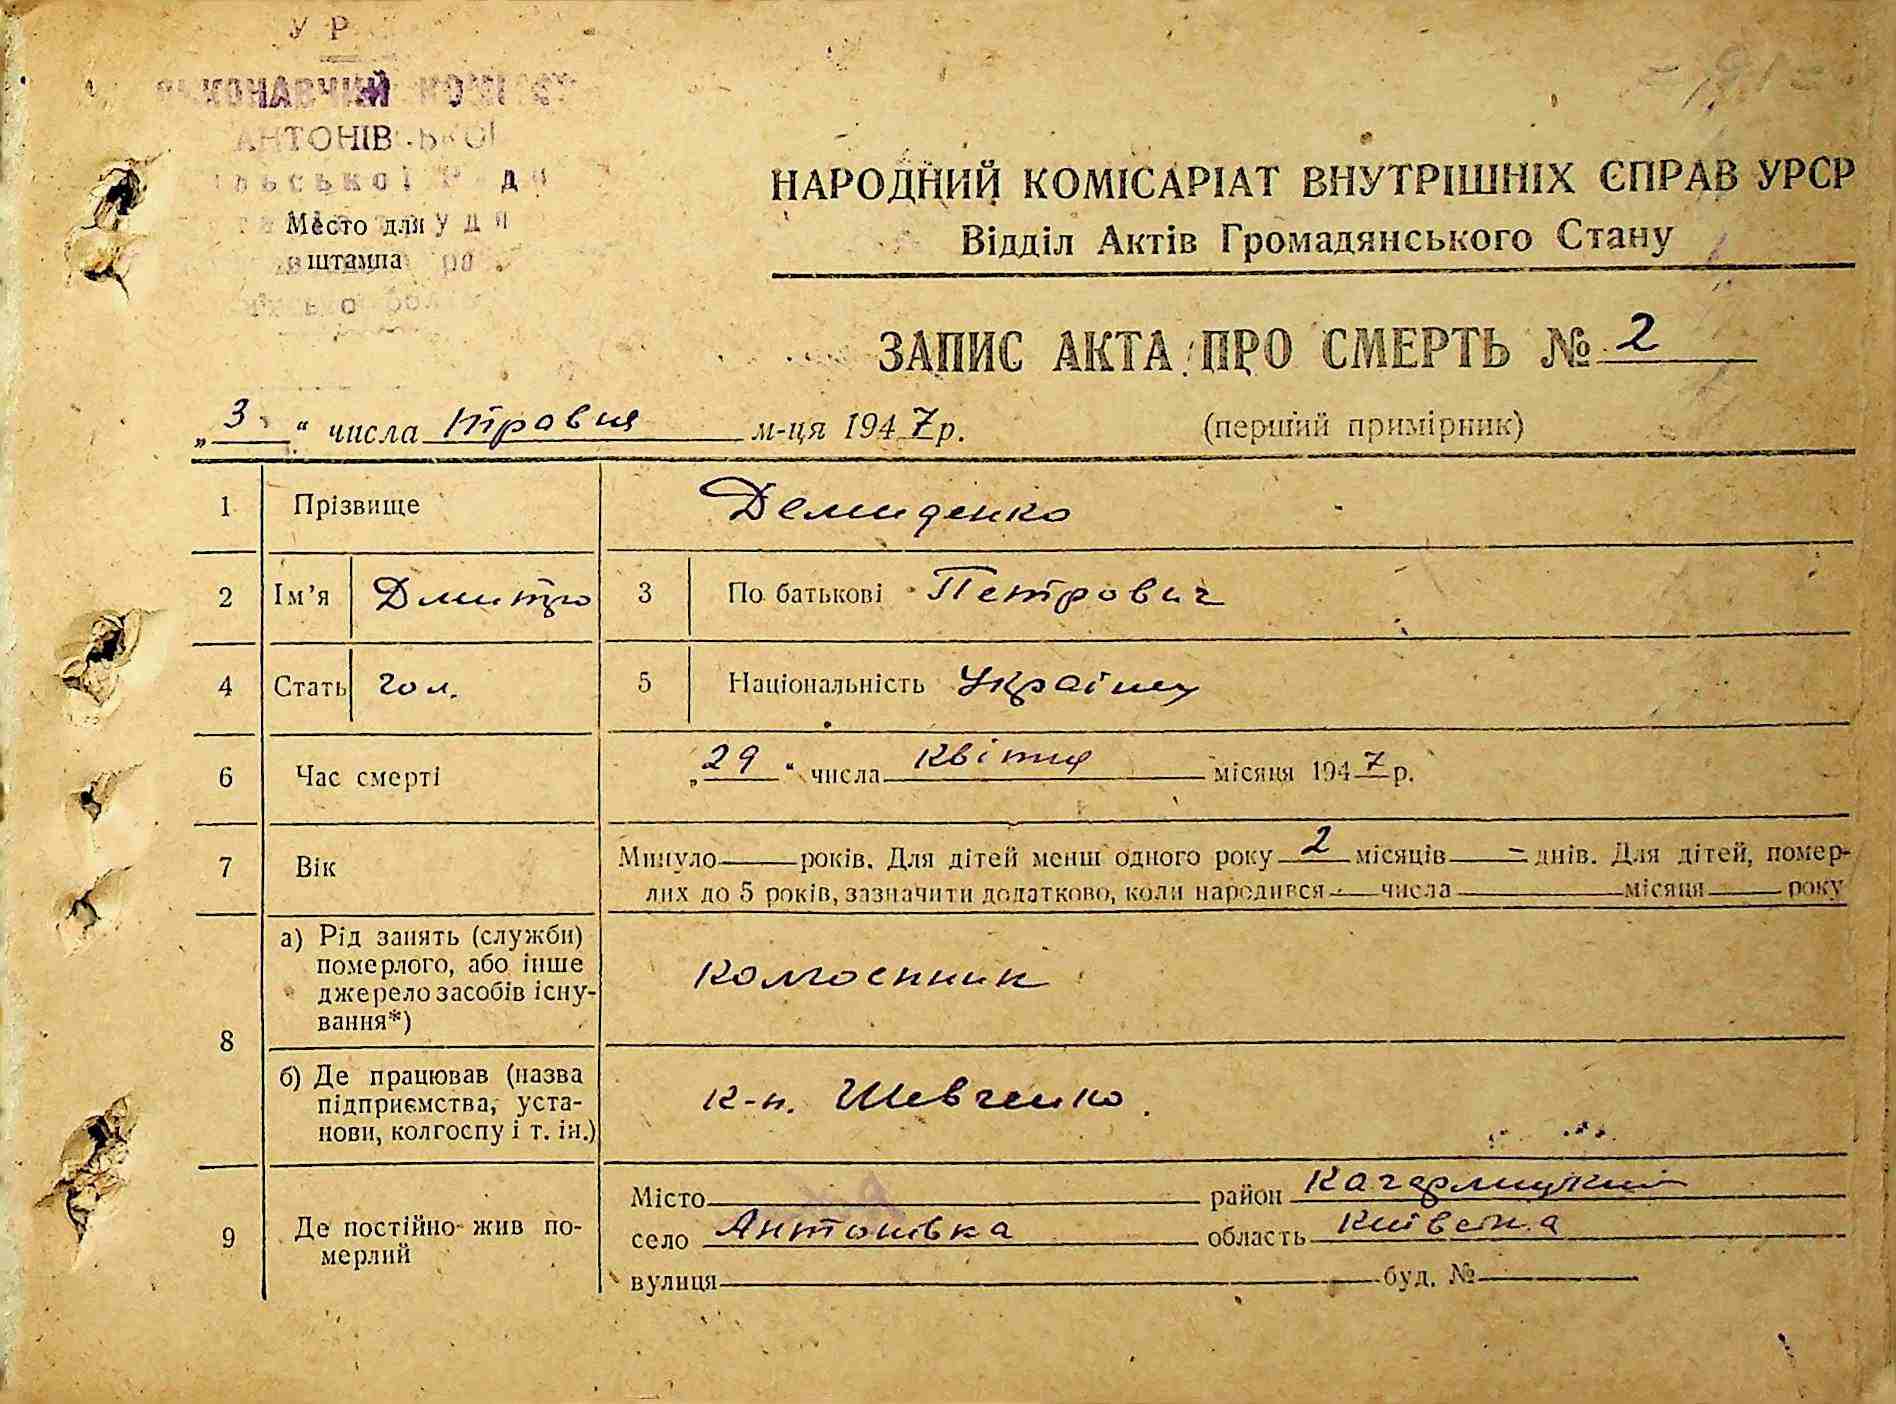 У Р
ВИКОНАВЧИЙ КОМІТЕТ
АНТОНІВСЬКОЇ
Место для
штампа
НАРОДНИЙ КОМІСАРІАТ ВНУТРІШНІХ СПРАВ УРСР
Відділ Актів Громадянського Стану
ЗАПИС АКТА ПРО СМЕРТЬ № 2
„3“ числа травня м-ця 1947 р. (перший примірник)
1 Прізвище Демиденко
2 Ім’я Дмитро 3 По батькові Петрович
4 Стать чол. 5 Національність Українц
6 Час смерті „29“ числа квітня місяця 1947 р.
7 Вік Минуло — років. Для дітей менш одного року 2 місяців — днів. Для дітей, помер-
лих до 5 років, зазначити додатково, коли народився — числа — місяця — року
8 а) Рід занять (служби)
померлого, або інше
джерело засобів існу-
вання*)
колгоспник
б) Де працював (назва
підприємства, уста-
нови, колгоспу і т. ін.)
к-п. Шевченко.
9 Де постійно жив по-
мерлий
Місто район Кагарлицкий
село Антонівка область Київська
вулиця буд. №